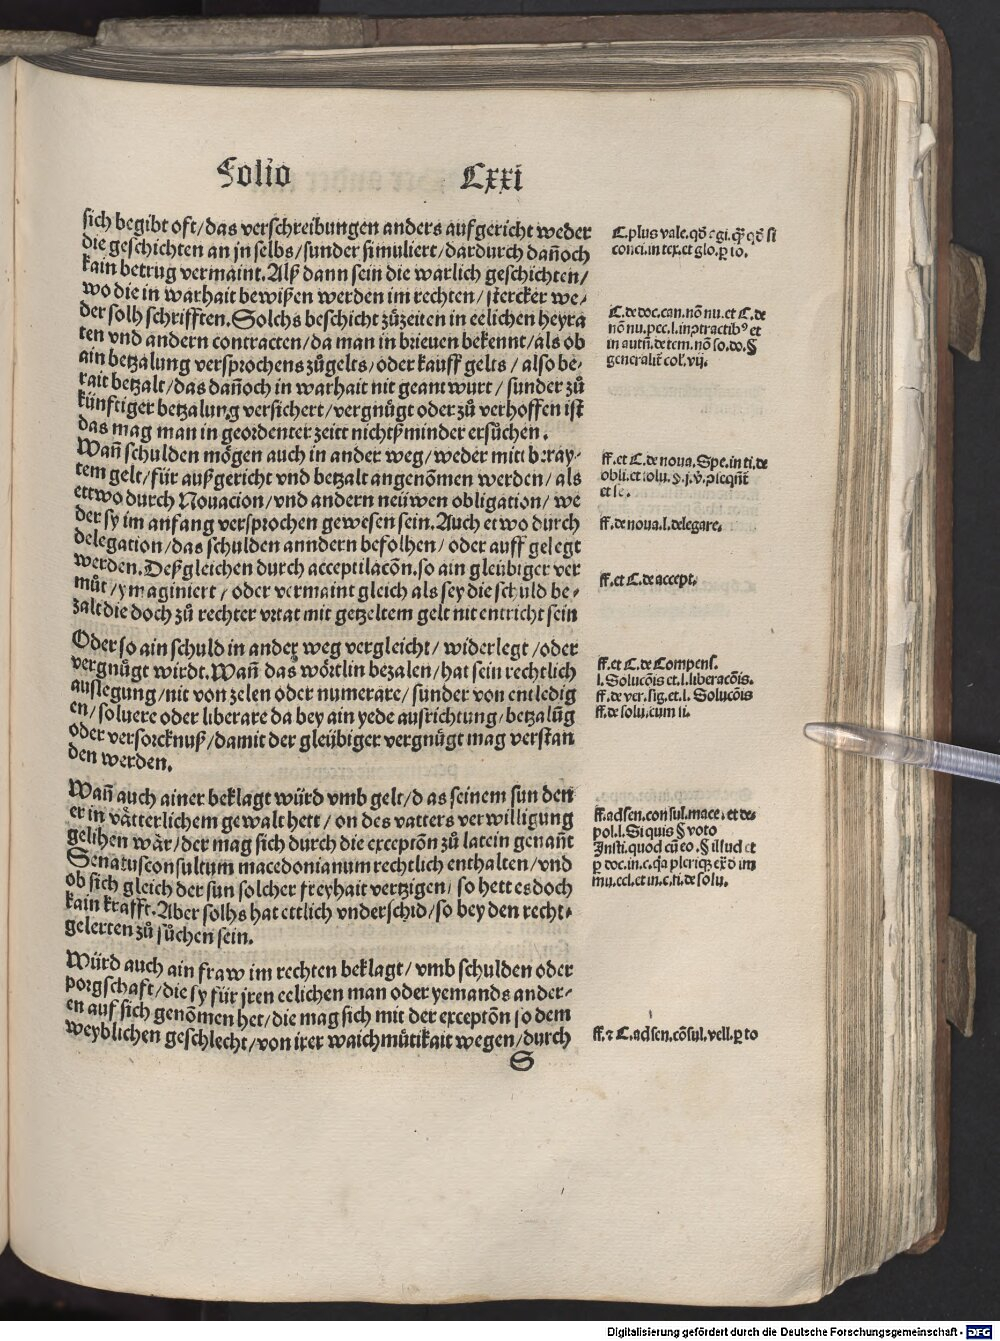 Folio Lxxi
sich begibt oft/das verschreibungen anders aufgericht weder
die geschichten an jn selbs/sunder simuliert/dardurch dañoch
kain betrug vermaint. Alß dann sein die warlich geschichten/
wo die in warhait bewißen werden im rechten/stercker we⸗
der solh schrifften. Solchs beschicht zůzeiten in eelichen heyra
ten vnd andern contracten/da man in brieuen bekennt/als ob
ain betzalung versprochens zůgelts/oder kauff gelts/also be⸗
rait betzalt/das dañoch in warhait nit geantwurt/sunder zů
künftiger betzalung versichert/vergnügt oder zů verhoffen ist
das mag man in geordenter zeitt nichtßminder ersůchen.
Wañ schulden mögen auch in ander weg/weder mitt beray⸗
tem gelt/für außgericht vnd betzalt angenõmen werden/als
ettwo durch Nouacion/vnd andern neüwen obligation/we
der sy im anfang versprochen gewesen sein. Auch etwo durch
delegation/das schulden anndern befolhen/oder auff gelegt
werden. Deßgleichen durch acceptilacõn. so ain gleübiger ver
můt/ymaginiert/oder vermaint gleich als sey die schuld be⸗
zalt die doch zů rechter vrtat mit getzeltem gelt nit entricht sein
Oder so ain schuld in ander weg vergleicht/widerlegt/oder
vergnügt wirdt. Wañ das wörtlin bezalen/hat sein rechtlich
auslegung/nit von zelen oder numerare/sunder von entledig
en/soluere oder liberare da bey ain yede ausrichtung/betzalũg
oder versorcknuß/damit der gleübiger vergnügt mag verstan
den werden.
Wañ auch ainer beklagt würd vmb gelt/d as seinem sun den
er in vätterlichem gewalt hett/on des vatters verwilligung
gelihen wär/der mag sich durch die exceptõn zů latein genañt
Senatusconsultum macedonianum rechtlich enthalten/vnd
ob sich gleich der sun solcher freyhait vertzigen/so hett es doch
kain krafft. Aber solhs hat ettlich vnderschid/so bey den recht⸗
gelerten zů sůchen sein.
Würd auch ain fraw im rechten beklagt/vmb schulden oder
porgschaft/die sy für jren eelichen man oder yemands ander⸗
en auf sich genõmen het/die mag sich mit der exceptõn so dem
weyblichen geschlecht/von irer waichmůtikait wegen/durch
S
C. plus vale. qđ agi. q̃ꝫ qđ si
conci. in tex. et glo. ꝑ to.
C. de doc. can. nõ nu. et C. de
nõ nu. pec. l. in ꝯtractibꝰ et
in autñ. de tem. nõ so. do. §
generalit̃ col̃. vij.
ff. et C. de noua. Spe. in ti. de
obli. et solu. §. j. v̉.
et se.
ff. de noua. l. delegare.
ff. et C. de accept.
ff. et C. de Compens.
l. Solucõis et. l. liberacõis.
ff. de ver. sig. et. l. Solucõis
ff. de solu. cum ii.
ff. ad sen. consul. mace. et de⸗
pol. l. Si quis § voto
Insti. quod cũ eo. § illud et
ꝑ doc. in. c. q̃a pleriqꝫ ex̃ d im
mu. eccl. et in. c. fi. de solu.
ff. ⁊ C. ad sen. cõsul. vell. ꝑ to
Digitalisierung gefördert durch die Deutsche Forschungsgemeinschaft - DFG